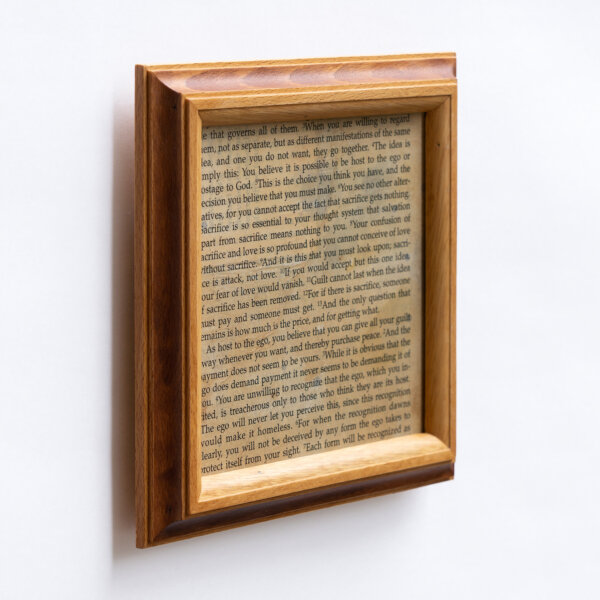 e that governs all of them. ²When you are willing to regard
em, not as separate, but as different manifestations of the same
lea, and one you do not want, they go together. ⁴The idea is
mply this: You believe it is possible to be host to the ego or
ostage to God. ⁵This is the choice you think you have, and the
ecision you believe that you must make. ⁶You see no other alter-
atives, for you cannot accept the fact that sacrifice gets nothing.
acrifice is so essential to your thought system that salvation
part from sacrifice means nothing to you. ⁸Your confusion of
acrifice and love is so profound that you cannot conceive of love
ithout sacrifice. ⁹And it is this that you must look upon; sacri-
ce is attack, not love. ¹⁰If you would accept but this one idea,
our fear of love would vanish. ¹¹Guilt cannot last when the idea
f sacrifice has been removed. ¹²For if there is sacrifice, someone
ust pay and someone must get. ¹³And the only question that
emains is how much is the price, and for getting what.
As host to the ego, you believe that you can give all your guilt
way whenever you want, and thereby purchase peace. ²And the
ayment does not seem to be yours. ³While it is obvious that the
go does demand payment it never seems to be demanding it of
ou. ⁴You are unwilling to recognize that the ego, which you in-
ited, is treacherous only to those who think they are its host.
The ego will never let you perceive this, since this recognition
vould make it homeless. ⁶For when the recognition dawns
learly, you will not be deceived by any form the ego takes to
protect itself from your sight. ⁷Each form will be recognized as